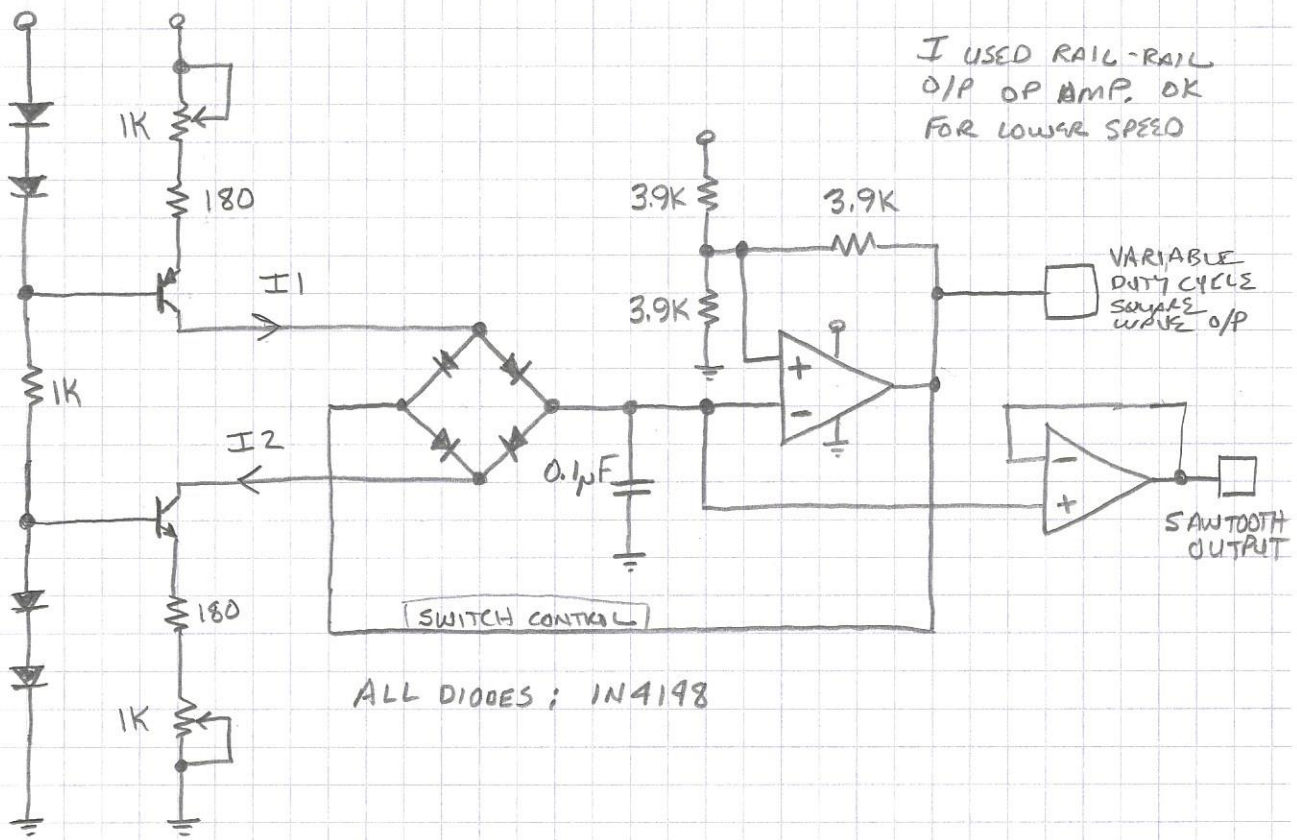 I USED RAIL-RAIL
O/P OP AMP. OK
FOR LOWER SPEED
1K
180
3.9K
3.9K
I1
VARIABLE
DUTY CYCLE
SQUARE
WAVE O/P
3.9K
+
-
1K
I2
0.1µF
-
+
SAWTOOTH
OUTPUT
180
SWITCH CONTROL
ALL DIODES: 1N4148
1K